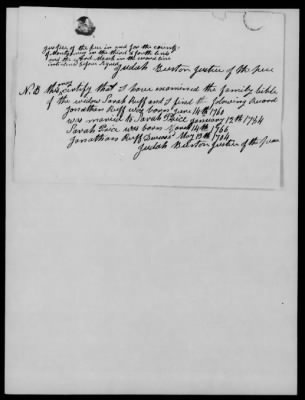 Justice of the pece in and for the county
of Montgomery in the third & forth lines
and the word Black in the same line
interlined before signed
Judah Burton Justice of the peace
N.B. this may certify that I have examined the family bible
of the widow Sarah Ruff and I find the folowing Record
Jonathan Ruff was born June 14th 1760
was married to Sarah Price January 12th 1784
Sarah Price was born 14th 1766
Jonathan Ruff Deceased May 13th
Judah Burton Justice of the peace